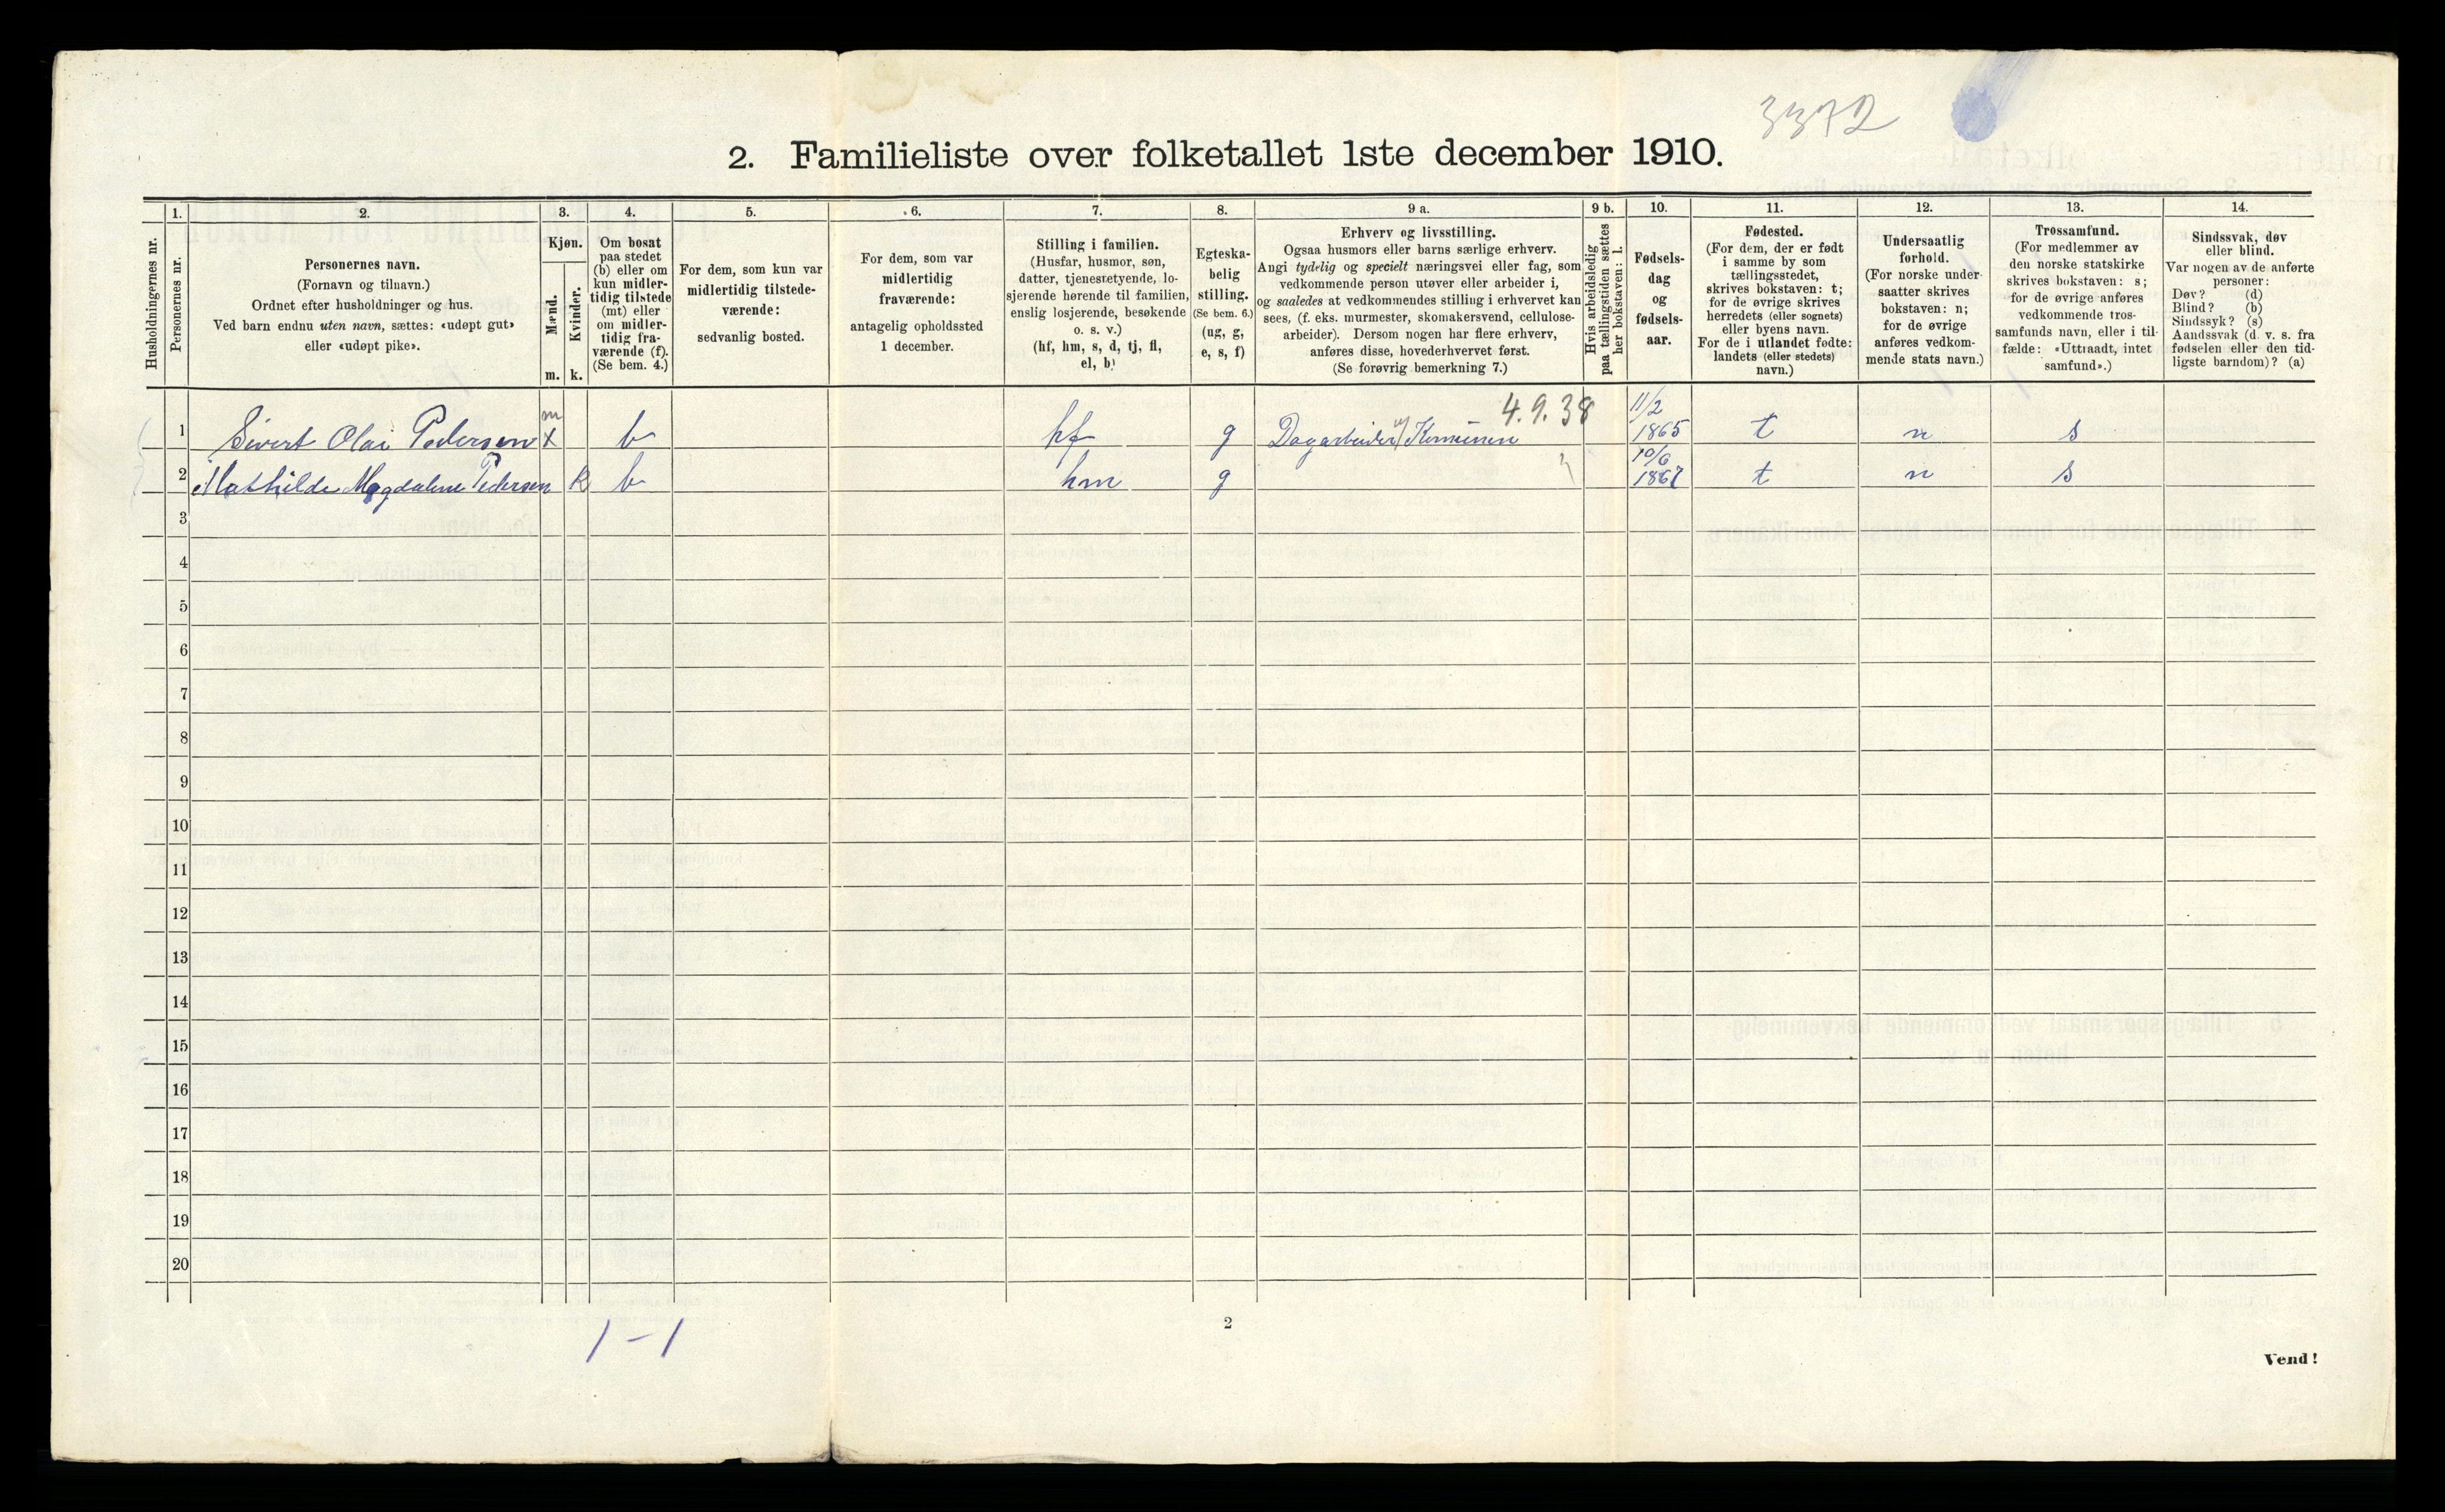 3372
2. Familieliste over folketallet 1ste december 1910.
1. 2. 3. 4. 5. 6. 7. 8. 9 a. 9 b. 10. 11. 12. 13. 14.
Husholdningernes nr.
Personernes nr.
Personernes navn.
(Fornavn og tilnavn.)
Ordnet efter husholdninger og hus.
Ved barn endnu uten navn, sættes: «udøpt gut»
eller «udøpt pike».
Kjøn.
Mænd.
Kvinder.
m. k.
Om bosat
paa stedet
(b) eller om
kun midler-
tidig tilstede
(mt) eller
om midler-
tidig fra-
værende (f).
(Se bem. 4.)
For dem, som kun var
midlertidig tilstede-
værende:
sedvanlig bosted.
For dem, som var
midlertidig
fraværende:
antagelig opholdssted
1 december.
Stilling i familien.
(Husfar, husmor, søn,
datter, tjenestetyende, lo-
sjerende hørende til familien,
enslig losjerende, besøkende
o. s. v.)
(hf, hm, s, d, tj, fl,
el, b)
Egteska-
belig
stilling.
(Se bem. 6.)
(ug, g,
e, s, f)
Erhverv og livsstilling.
Ogsaa husmors eller barns særlige erhverv.
Angi tydelig og specielt næringsvei eller fag, som
vedkommende person utøver eller arbeider i,
og saaledes at vedkommendes stilling i erhvervet kan
sees, (f. eks. murmester, skomakersvend, cellulose-
arbeider). Dersom nogen har flere erhverv,
anføres disse, hovederhvervet først.
(Se forøvrig bemerkning 7.)
Hvis arbeidsledig
paa tællingstiden sættes
her bokstaven: l.
Fødsels-
dag
og
fødsels-
aar.
Fødested.
(For dem, der er født
i samme by som
tællingsstedet,
skrives bokstaven: t;
for de øvrige skrives
herredets (eller sognets)
eller byens navn.
For de i utlandet fødte:
landets (eller stedets)
navn.)
Undersaatlig
forhold.
(For norske under-
saatter skrives
bokstaven: n;
for de øvrige
anføres vedkom-
mende stats navn.)
Trossamfund.
(For medlemmer av
den norske statskirke
skrives bokstaven: s;
for de øvrige anføres
vedkommende tros-
samfunds navn, eller i til-
fælde: «Uttraadt, intet
samfund».)
Sindssvak, døv
eller blind.
Var nogen av de anførte
personer:
Døv? (d)
Blind? (b)
Sindssyk? (s)
Aandssvak (d. v. s. fra
fødselen eller den tid-
ligste barndom)? (a)
m 4.9.38 11/2
1 Sivert Olai Pedersen x b hf g Dagarbeider v/ Komunen 1865 t n s
10/6
2 Mathilde Magdalene Pedersen k b hm g 1867 t n s
3
4
5
6
7
8
9
10
11
12
13
14
15
16
17
18
19
20
1-1
2
Vend!